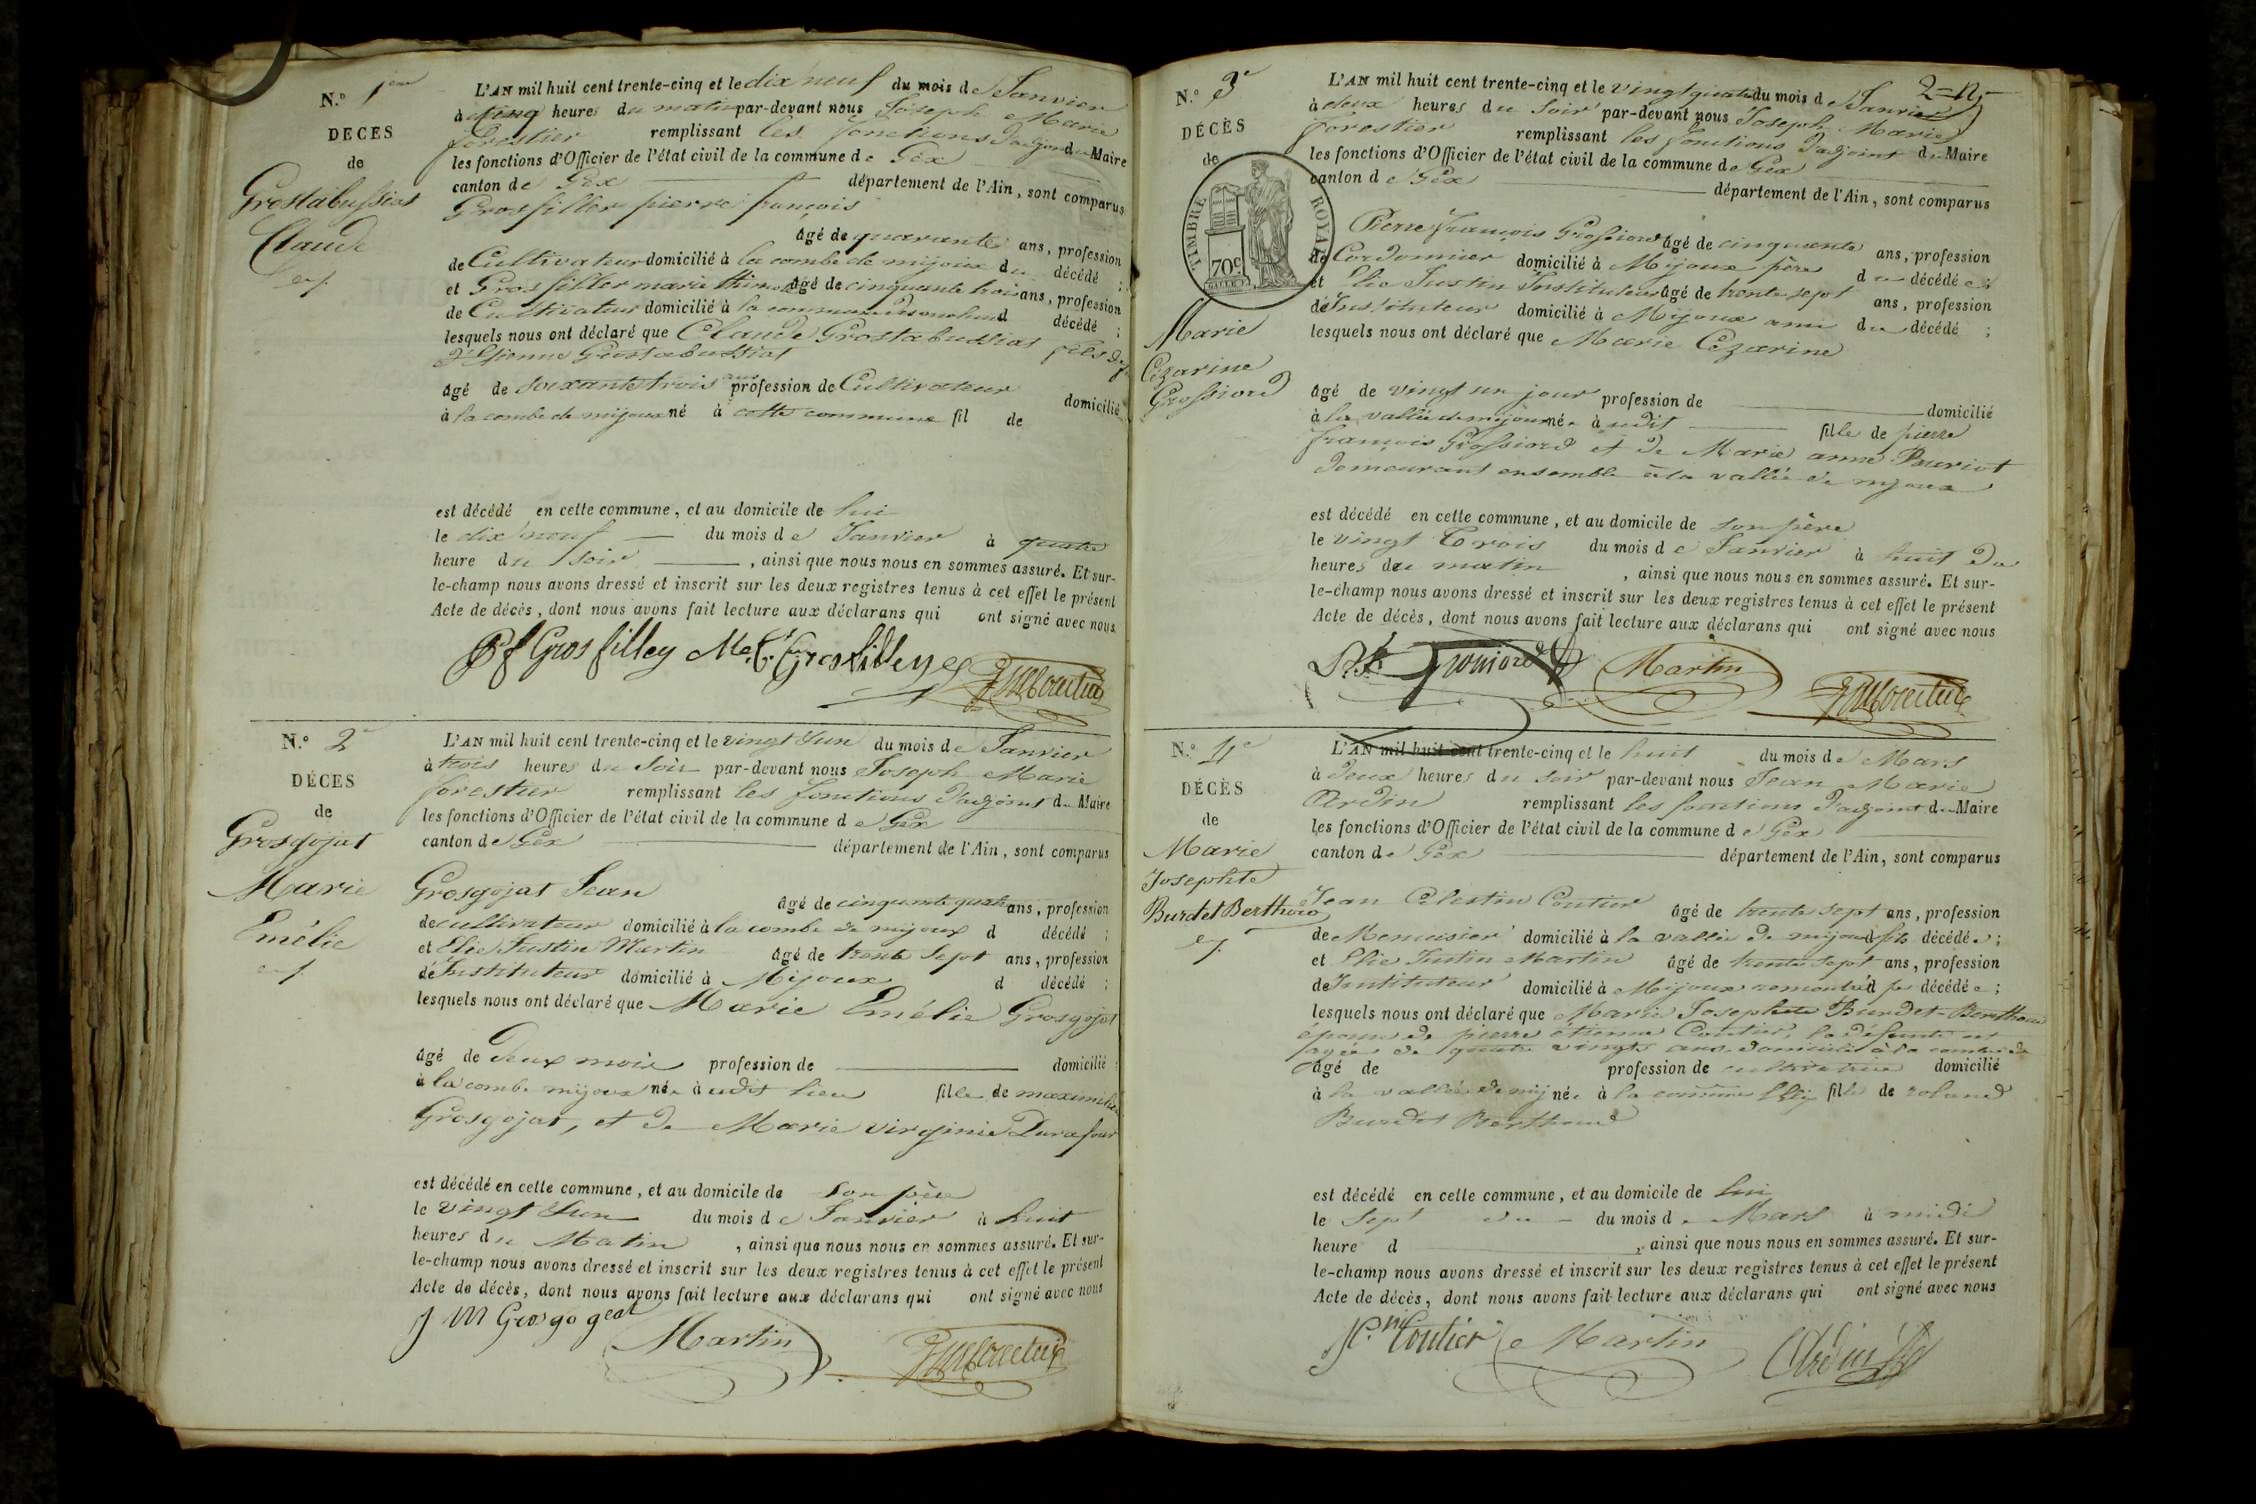 N.º 1er
DÉCÈS
de
Grostabussiat
Claude
L'AN mil huit cent trente-cinq et le dix neuf du mois de Janvier
à cinq heures du matin par-devant nous Joseph Marie
forestier remplissant les fonctions d'adjoint du Maire
les fonctions d'Officier de l'état civil de la commune de Gex
canton de Gex département de l'Ain, sont comparus
Grosfilley pierre françois
âgé de quarante ans, profession
de Cultivateur domicilié à la combe de mijoux du décédé ;
et Grosfilley marie âgé de cinquante trois ans, profession
de Cultivateur domicilié à la d décédé ;
lesquels nous ont déclaré que Claude Grostabussiat fils d'
Etienne Grostabussiat
âgé de soixante trois ans profession de Cultivateur domicilié
à la combe de mijoux né à cette commune fil de
est décédé en cette commune, et au domicile de lui
le dix neuf du mois de Janvier à quatre
heure du soir , ainsi que nous nous en sommes assuré. Et sur-
le-champ nous avons dressé et inscrit sur les deux registres tenus à cet effet le présent
Acte de décès, dont nous avons fait lecture aux déclarans qui ont signé avec nous
P f Grosfilley
N.º 2e
DÉCES
de
Grosgojat
Marie
Emélie
L'AN mil huit cent trente-cinq et le vingt Sun du mois de Janvier
à trois heures du soir par-devant nous Joseph Marie
forestier remplissant les fonctions d'adjoint du Maire
les fonctions d'Officier de l'état civil de la commune de Gex
canton de Gex département de l'Ain, sont comparus
Grosgojat Jean
âgé de cinquante quatre ans, profession
de cultivateur domicilié à la combe de mijoux d décédé ;
et Elie Justin Martin âgé de trente Sept ans, profession
de Instituteur domicilié à Mijoux d décédé ;
lesquels nous ont déclaré que Marie Emélie Grosgojat
âgé de Deux mois profession de domicilié
à la combe mijoux née à udit lieu fille de maximilien
Grosgojat, et de Marie virginie Durafour
est décédé en cette commune, et au domicile de son père
le vingt Sun du mois de Janvier à huit
heures du Matin , ainsi que nous nous en sommes assuré. Et sur-
le-champ nous avons dressé et inscrit sur les deux registres tenus à cet effet le présent
Acte de décès, dont nous avons fait lecture aux déclarans qui ont signé avec nous
J M Grosgogeat Martin
N.º 3e
DÉCÈS
de
TIMBRE ROYAL
70c
Marie
Cézarine
Grossiord
L'AN mil huit cent trente-cinq et le vingt quatre du mois de Janvier
à deux heures du soir par-devant nous Joseph Marie
forestier remplissant les fonctions d'adjoint du Maire
les fonctions d'Officier de l'état civil de la commune de Gex
canton de Gex département de l'Ain, sont comparus
Pierre françois Grossiord âgé de cinquante ans, profession
de Cordonnier domicilié à Mijoux père du décédé e ;
et Elie Justin Instituteur âgé de trente sept ans, profession
de Instituteur domicilié à Mijoux ami du décédé ;
lesquels nous ont déclaré que Marie Cézarine
âgé de vingt un jour profession de domicilié
à la vallée de mijoux née à udit fille de pierre
françois Grossiord et de Marie anne
demeurant ensemble à la vallée de mijoux
est décédé en cette commune, et au domicile de son père
le vingt Trois du mois de Janvier à huit du
heures du matin , ainsi que nous nous en sommes assuré. Et sur-
le-champ nous avons dressé et inscrit sur les deux registres tenus à cet effet le présent
Acte de décès, dont nous avons fait lecture aux déclarans qui ont signé avec nous
Martin
N.º 4e
DÉCÈS
de
Marie
Josephte
Burdet Berthoud
L'AN mil huit cent trente-cinq et le huit du mois de Mars
à deux heures du soir par-devant nous Jean Marie
Ardin remplissant les fonctions d'adjoint du Maire
les fonctions d'Officier de l'état civil de la commune de Gex
canton de Gex département de l'Ain, sont comparus
Jean Célestin Coutier âgé de trente sept ans, profession
de Menuisier domicilié à la vallée de mijoux fils décédé e ;
et Elie Justin Martin âgé de trente sept ans, profession
de Instituteur domicilié à Mijoux décédé e ;
lesquels nous ont déclaré que Marie Josephte Burdet Berthoud
épouse de pierre étienne Coutier, la défunte est
agée de quatre vingts ans domicilié à la combe de
âgé de profession de cultivatrice domicilié
à la vallée de mij née à la commune fille de roland
Burdet Berthoud
est décédé en cette commune, et au domicile de lui
le Sept du mois de Mars à midi
heure d , ainsi que nous nous en sommes assuré. Et sur-
le-champ nous avons dressé et inscrit sur les deux registres tenus à cet effet le présent
Acte de décès, dont nous avons fait lecture aux déclarans qui ont signé avec nous
Coutier Martin Ardin